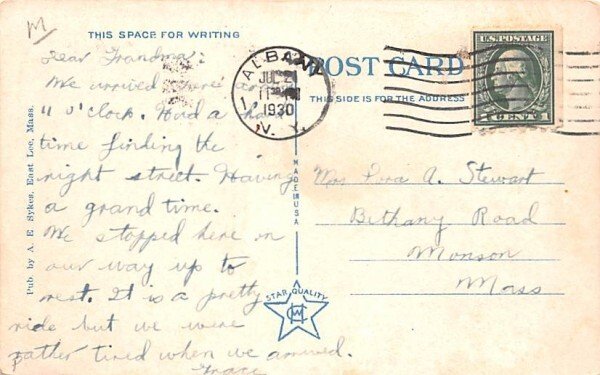 M
THIS SPACE FOR WRITING
Dear Grandma:
We arrived here
11 o'clock. Had a hard
time finding the
right street. Having
a grand time.
We stopped here on
our way up to
rest. It is a pretty
ride but we were
rather tired when we arrived.
Pub. by A. E. Sykes, East Lee, Mass.
ALBANY
JUL 2
11
1930
N. Y.
1
POST CARD
THIS SIDE IS FOR THE ADDRESS
U.S. POSTAGE
CENT
MADE IN USA
Mrs A. Stewart
Bethany Road
Monson
Mass
STAR QUALITY